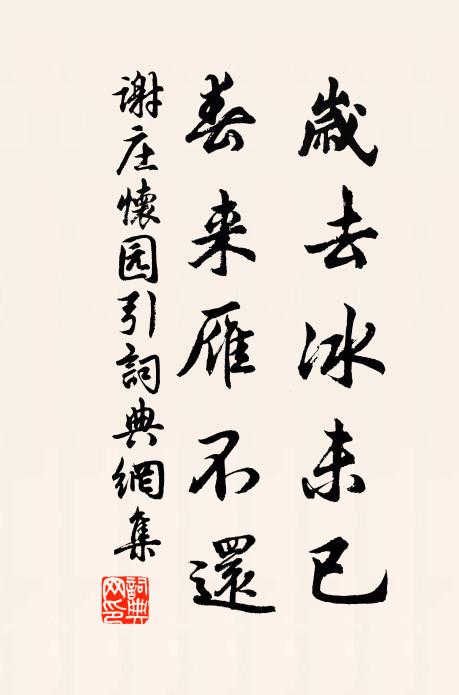 歲去冰未已
春来雁不還
谢庄懷园引詞典網集
詞典网印